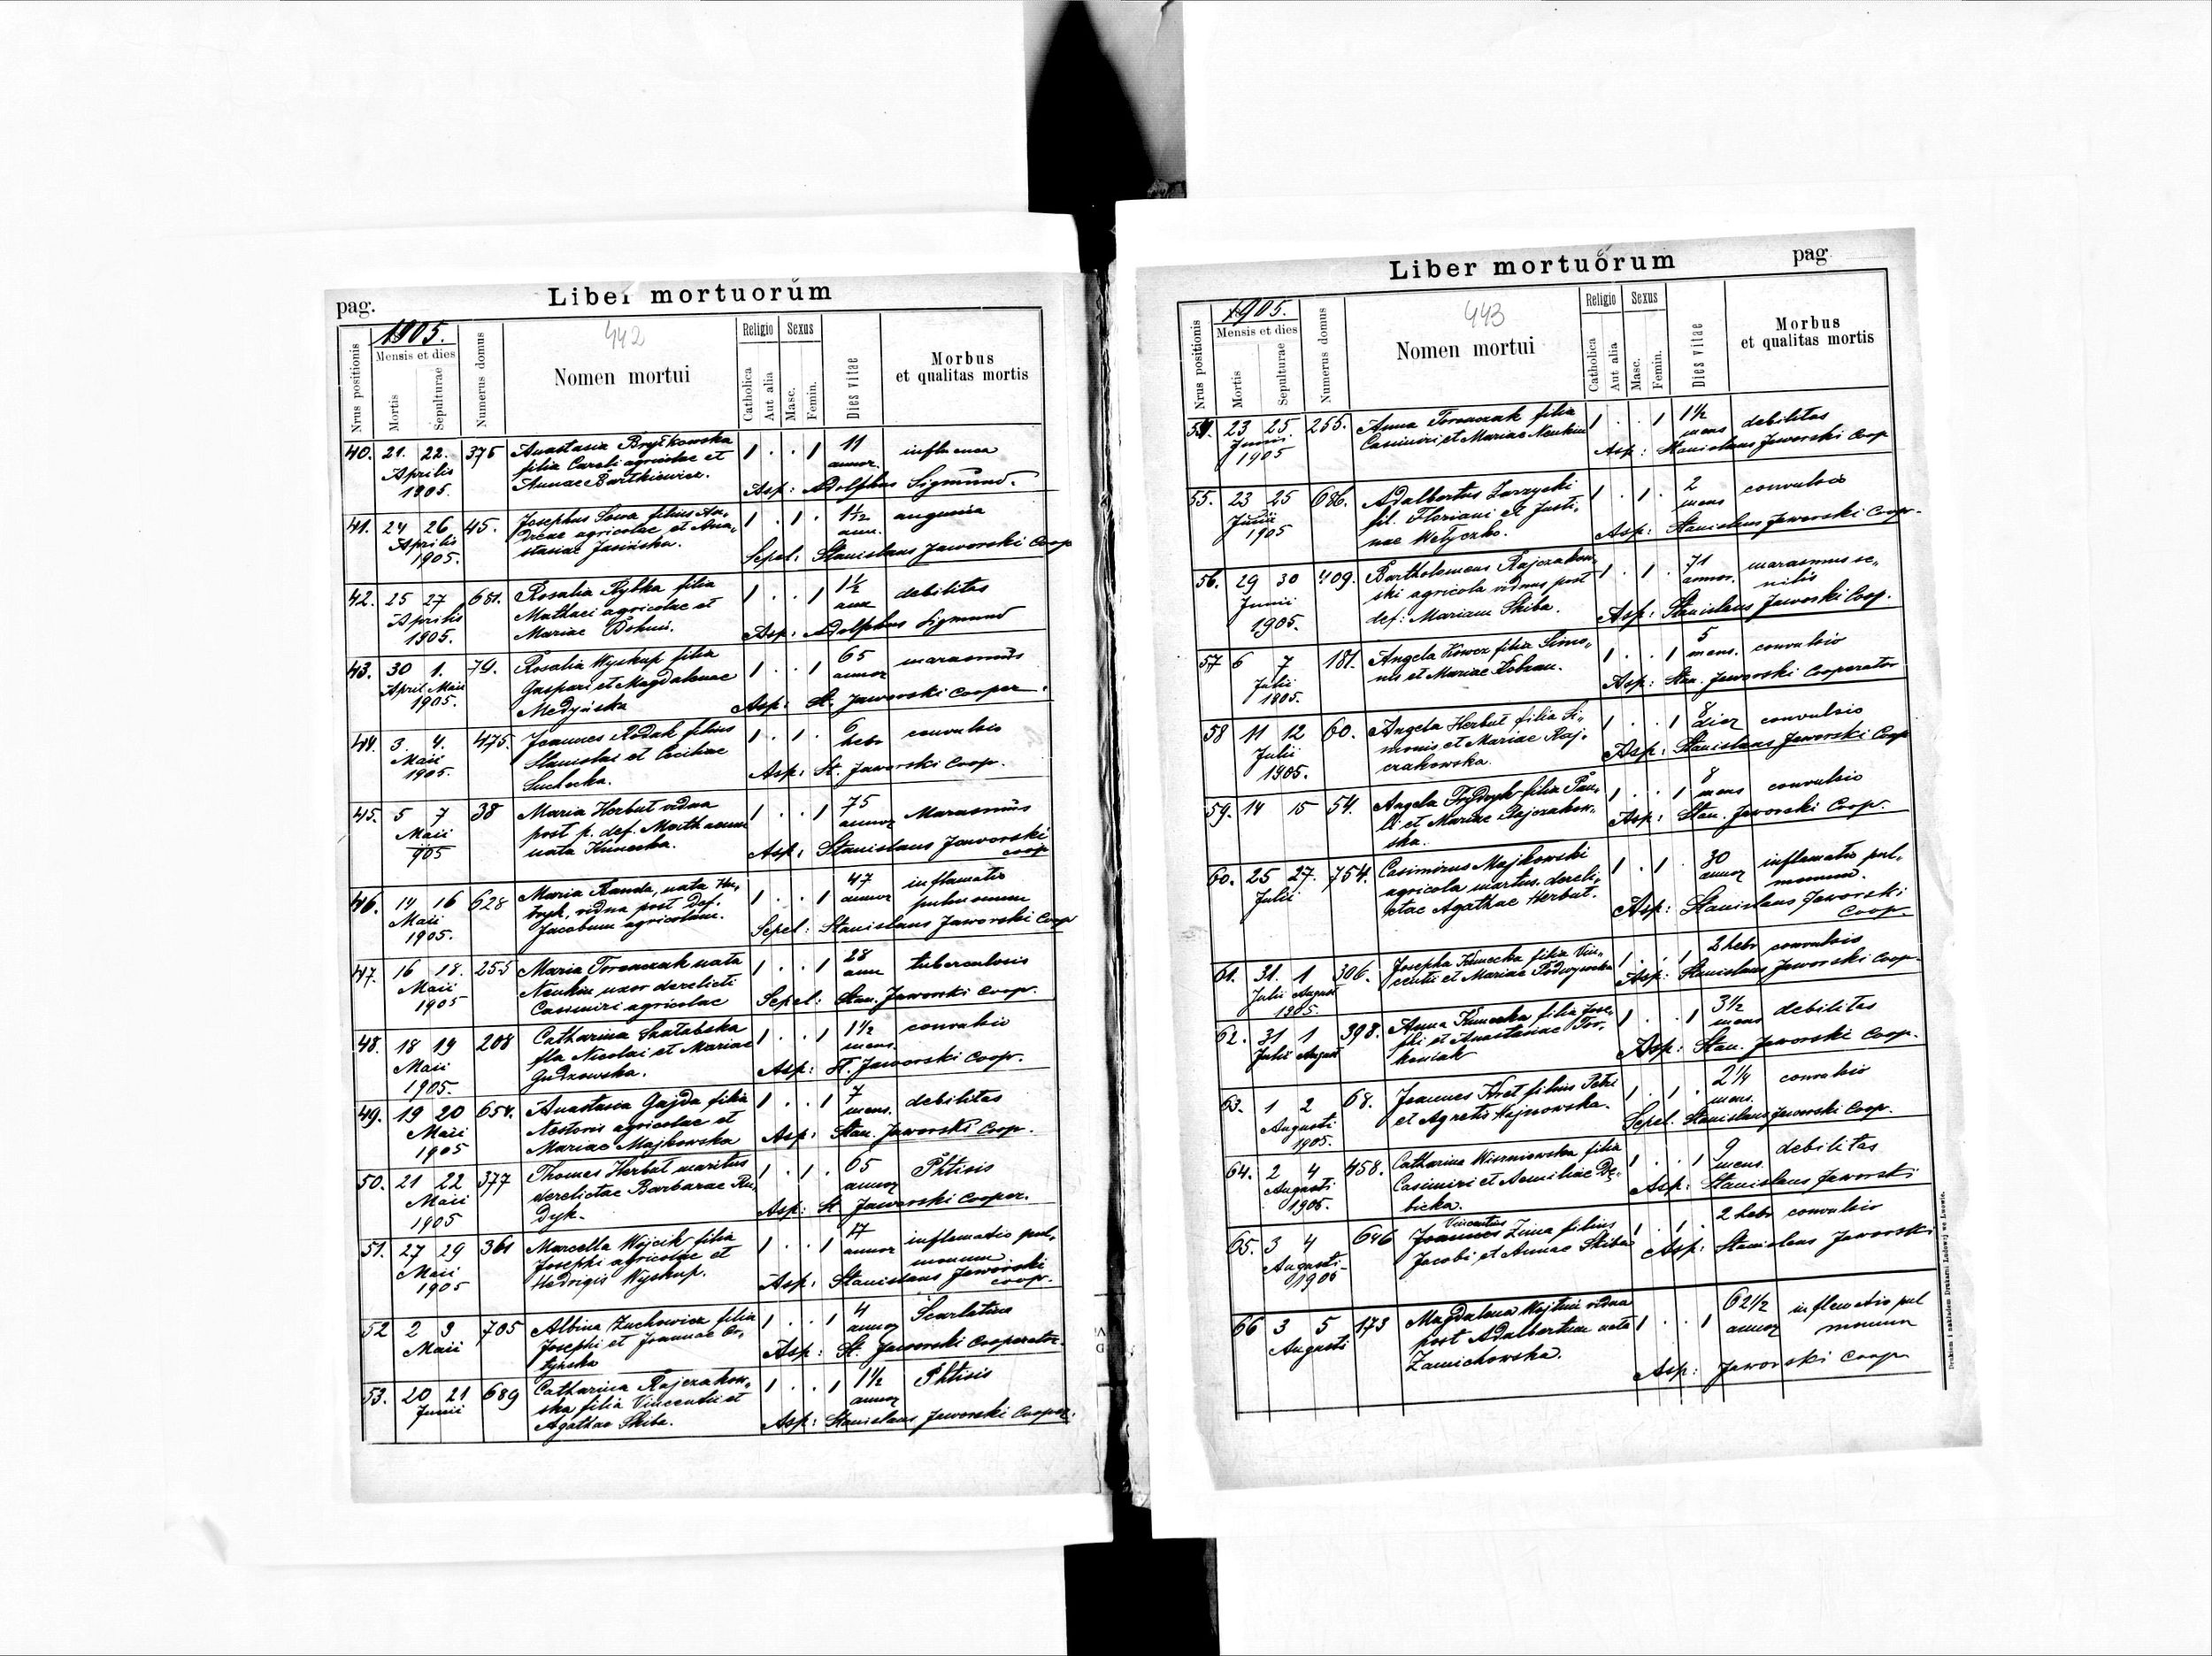 pag. Liber mortuorum
1905.
442
Nrus positionis
Mensis et dies
Mortis
Sepulturae
Numerus domus
Nomen mortui
Religio
Catholica
Aut alia
Sexus
Masc.
Femin.
Dies vitae
Morbus
et qualitas mortis
40. 21. 22. 376 Anastasia Bryłkowska 1 . . 1 11 influenca
Aprilis filia Caroli agricolae et annor.
1905. Annae Bartkiewicz. Asp: Adolphus Sigmund.
41. 24 26 45. Josephus Sowa filius An- 1 . 1 . 1½ angunia
Aprilis dreae agricolae et Ana- ann.
1905. stasiae Jasińska. Sepel: Stanislaus Jaworski Coop
42. 25 27 681. Rosalia Rybka filia 1 . . 1 1½ debilitas
Aprilis Mathaei agricolae et ann
1905. Mariae Asp: Adolphus Sigmund
43. 30 1. 79. Rosalia Wyskup filia 1 . . 1 65 marasmus
April Maii Gaspari et Magdalenae annor
1905. Medyńska Asp: St. Jaworski Cooper.
44. 3. 4. 475. Joannes Rodak filius 1 . 1 . 6 convulsio
Maii Stanislai et Ceciliae hebr
1905. Suchecka. Asp: St. Jaworski Coop.
45. 5 7 38 Maria Herbut vidua 1 . . 1 75 Marasmus
Maii post p. def. Mathaeum annor
905 nata Kunecka. Asp: Stanislaus Jaworski
coop
46. 14 16 628 Maria Randa, nata 1 . . 1 47 inflamatio
Maii vidua post def. annor pulmonum
1905. Jacobum agricolam. Sepel: Stanislaus Jaworski Coop
47. 16 18. 255 Maria Tronczak nata 1 . . 1 28 tuberculosis
Maii Neukin uxor derelicti ann
1905 Casimiri agricolae Sepel: Stan. Jaworski Coop.
48. 18 19 208 Catharina 1 . . 1 1½ convulsio
Maii fla Nicolai et Mariae mens.
1905. Gudzowska. Asp: St. Jaworski Coop.
49. 19 20 654. Anastasia Gajda filia 1 . . 1 7 debilitas
Maii Nestoris agricolae et mens.
1905 Mariae Majkowska Asp: Stan. Jaworski Coop.
50. 21 22 377 Thomas Herbut maritus 1 . 1 . 65 Phtisis
Maii derelictae Barbarae Ru- annor
1905 dyk. Asp: St Jaworski Cooper.
51. 27 29 361 Marcella Wójcik filia 1 . . 1 17 inflamatio pul-
Maii Josephi agricolae et annor monum
1905 Hedvigis Wyskup. Asp: Stanislaus Jaworski
coop.
52 2 3 705 Albina Zuchowicz filia 1 . . 1 4 Scarlatina
Maii Josephi et Joannae annor
Asp: St. Jaworski Cooperator
53. 20 21 689 Catharina Rajczakow- 1 . . 1 1½ Phtisis
Junii ska filia Vincentii et annor
Agathae Skiba. Asp: Stanislaus Jaworski Cooper.
Liber mortuorum pag
1905.
443
Nrus positionis
Mensis et dies
Mortis
Sepulturae
Numerus domus
Nomen mortui
Religio
Catholica
Aut alia
Sexus
Masc.
Femin.
Dies vitae
Morbus
et qualitas mortis
54. 23 25 255. Anna Tronczak filia 1 . . 1 1½ debilitas
Junii Casimiri et Mariae Neukin mens
1905 Asp: Stanislaus Jaworski Coop
55. 23 25 686. Adalbertus Zarzycki 1 . 1 . 2 convulsio
Junii fil. Floriani et Justi- mens
1905 nae Welyczko. Asp: Stanislaus Jaworski Coop.
56. 29 30 409. Bartholomeus Rajczakow- 1 . 1 . 71 marasmus se-
Junii ski agricola viduus post annor. nilis
1905. def: Mariam Skiba. Asp: Stanislaus Jaworski Coop.
57 6 7 181. Angela filia Simo- 1 . . 1 5 convulsio
Julii nis et Mariae mens.
1805. Asp: Stan. Jaworski Cooperator
58 11 12 60. Angela Herbut filia Si- 1 . . 1 8 convulsio
Julii monis et Mariae Raj- dier
1905. czakowska. Asp: Stanislaus Jaworski Coop
59. 14 15 54. Angela Frydryk filia Pau- 1 . . 1 8 convulsio
li et Mariae Rajczakow- mens
ska. Asp: Stan. Jaworski Coop.
60. 25 27. 754. Casimirus Majkowski 1 . 1 . 30 inflamatio pul-
Julii agricola maritus dereli- annor monum.
ctae Agathae Herbut. Asp: Stanislaus Jaworski
Coop.
61. 31. 1 306. Josepha Kunecka filia Vin- 1 . . 1 2 hebr convulsio
Julii August centii et Mariae Podwyrowska Asp: Stanislaus Jaworski Coop.
1905.
62. 31 1 398. Anna Kunecka filia Jose- 1 . . 1 3½ debilitas
Julii August phi et Anastasiae Tor- mens
koniak Asp: Stan. Jaworski Coop.
63. 1 2 68. Joannes Kret filius Petri 1 . 1 . 2¼ convulsio
Augusti et Agnetis Hajnowska. mens.
1905. Sepel. Stanislaus Jaworski Coop.
64. 2 4 458. Catharina Wiszniowska filia 1 . . 1 9 debilitas
Augusti Casimiri et Aemiliae Dę- mens.
1905. bicka. Asp: Stanislaus Jaworski
Vincentius
65. 3 4 646 Joannes Zima filius 1 . 1 . 2 hebr convulsio
Augusti Jacobi et Annae Skiba Asp: Stanislaus Jaworski
1905
66 3 5 173 Magdalena Wojtun vidua 1 . . 1 62½ inflamatio pul
Augusti post Adalbertum nata annor monum
Zamichowska. Asp: Jaworski Coop
Drukiem i nakładem Drukarni Ludowej we Lwowie.